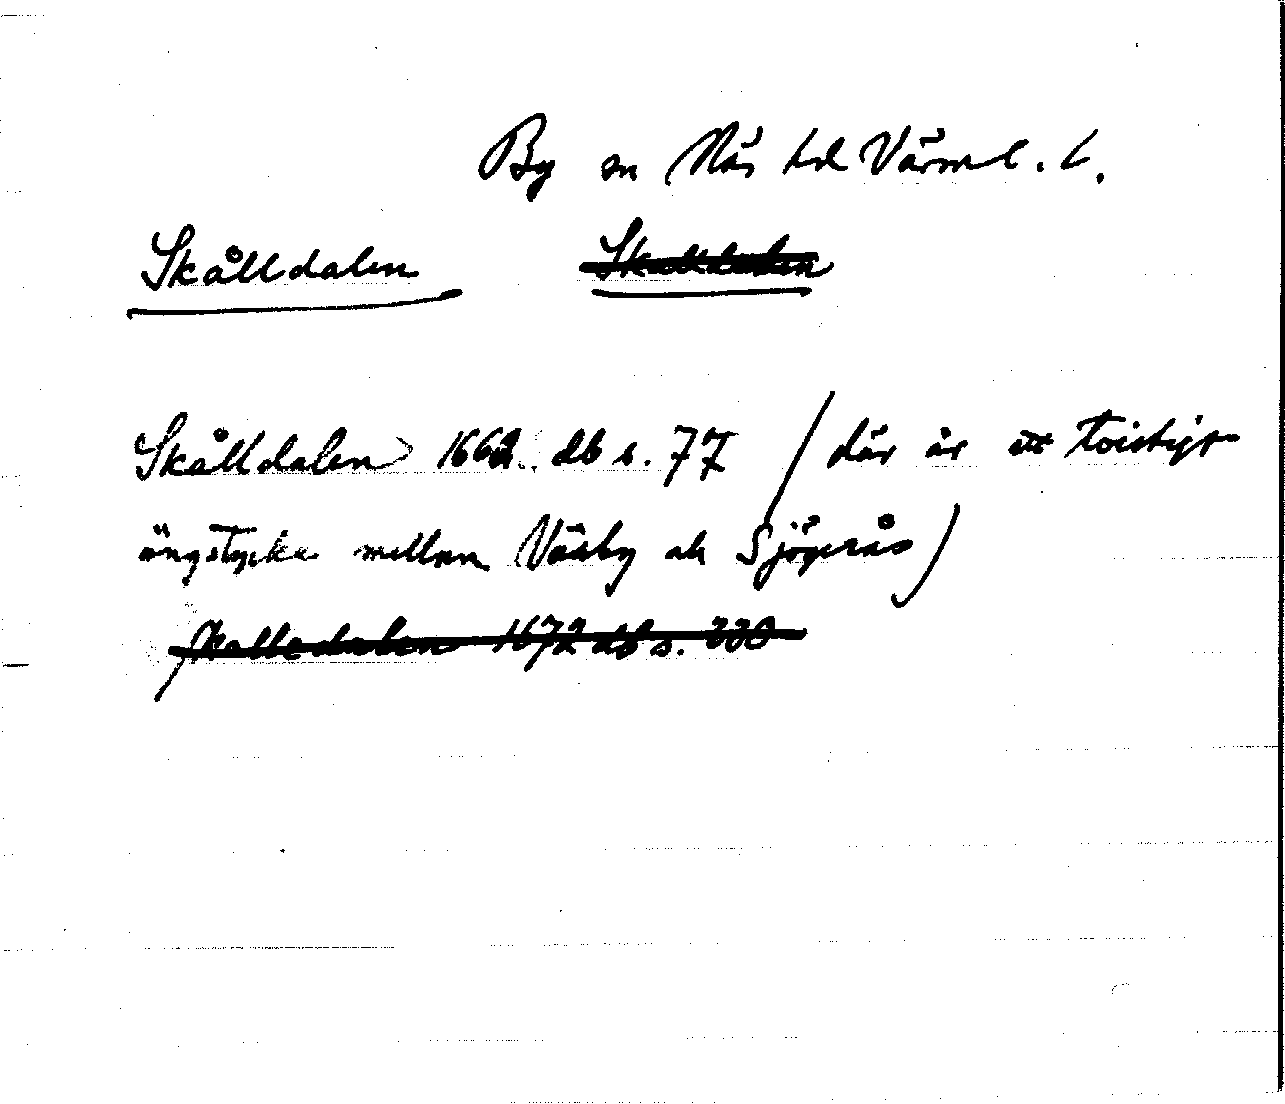 By sn Näs hd Värml. l.
Skålldalen Skalldalen
Skålldalen 1662 db s. 77 / där är ett tvistigt
ängstycke mellan Väsby ok Sjögerås)
Skalledalen 1672 db s. 330